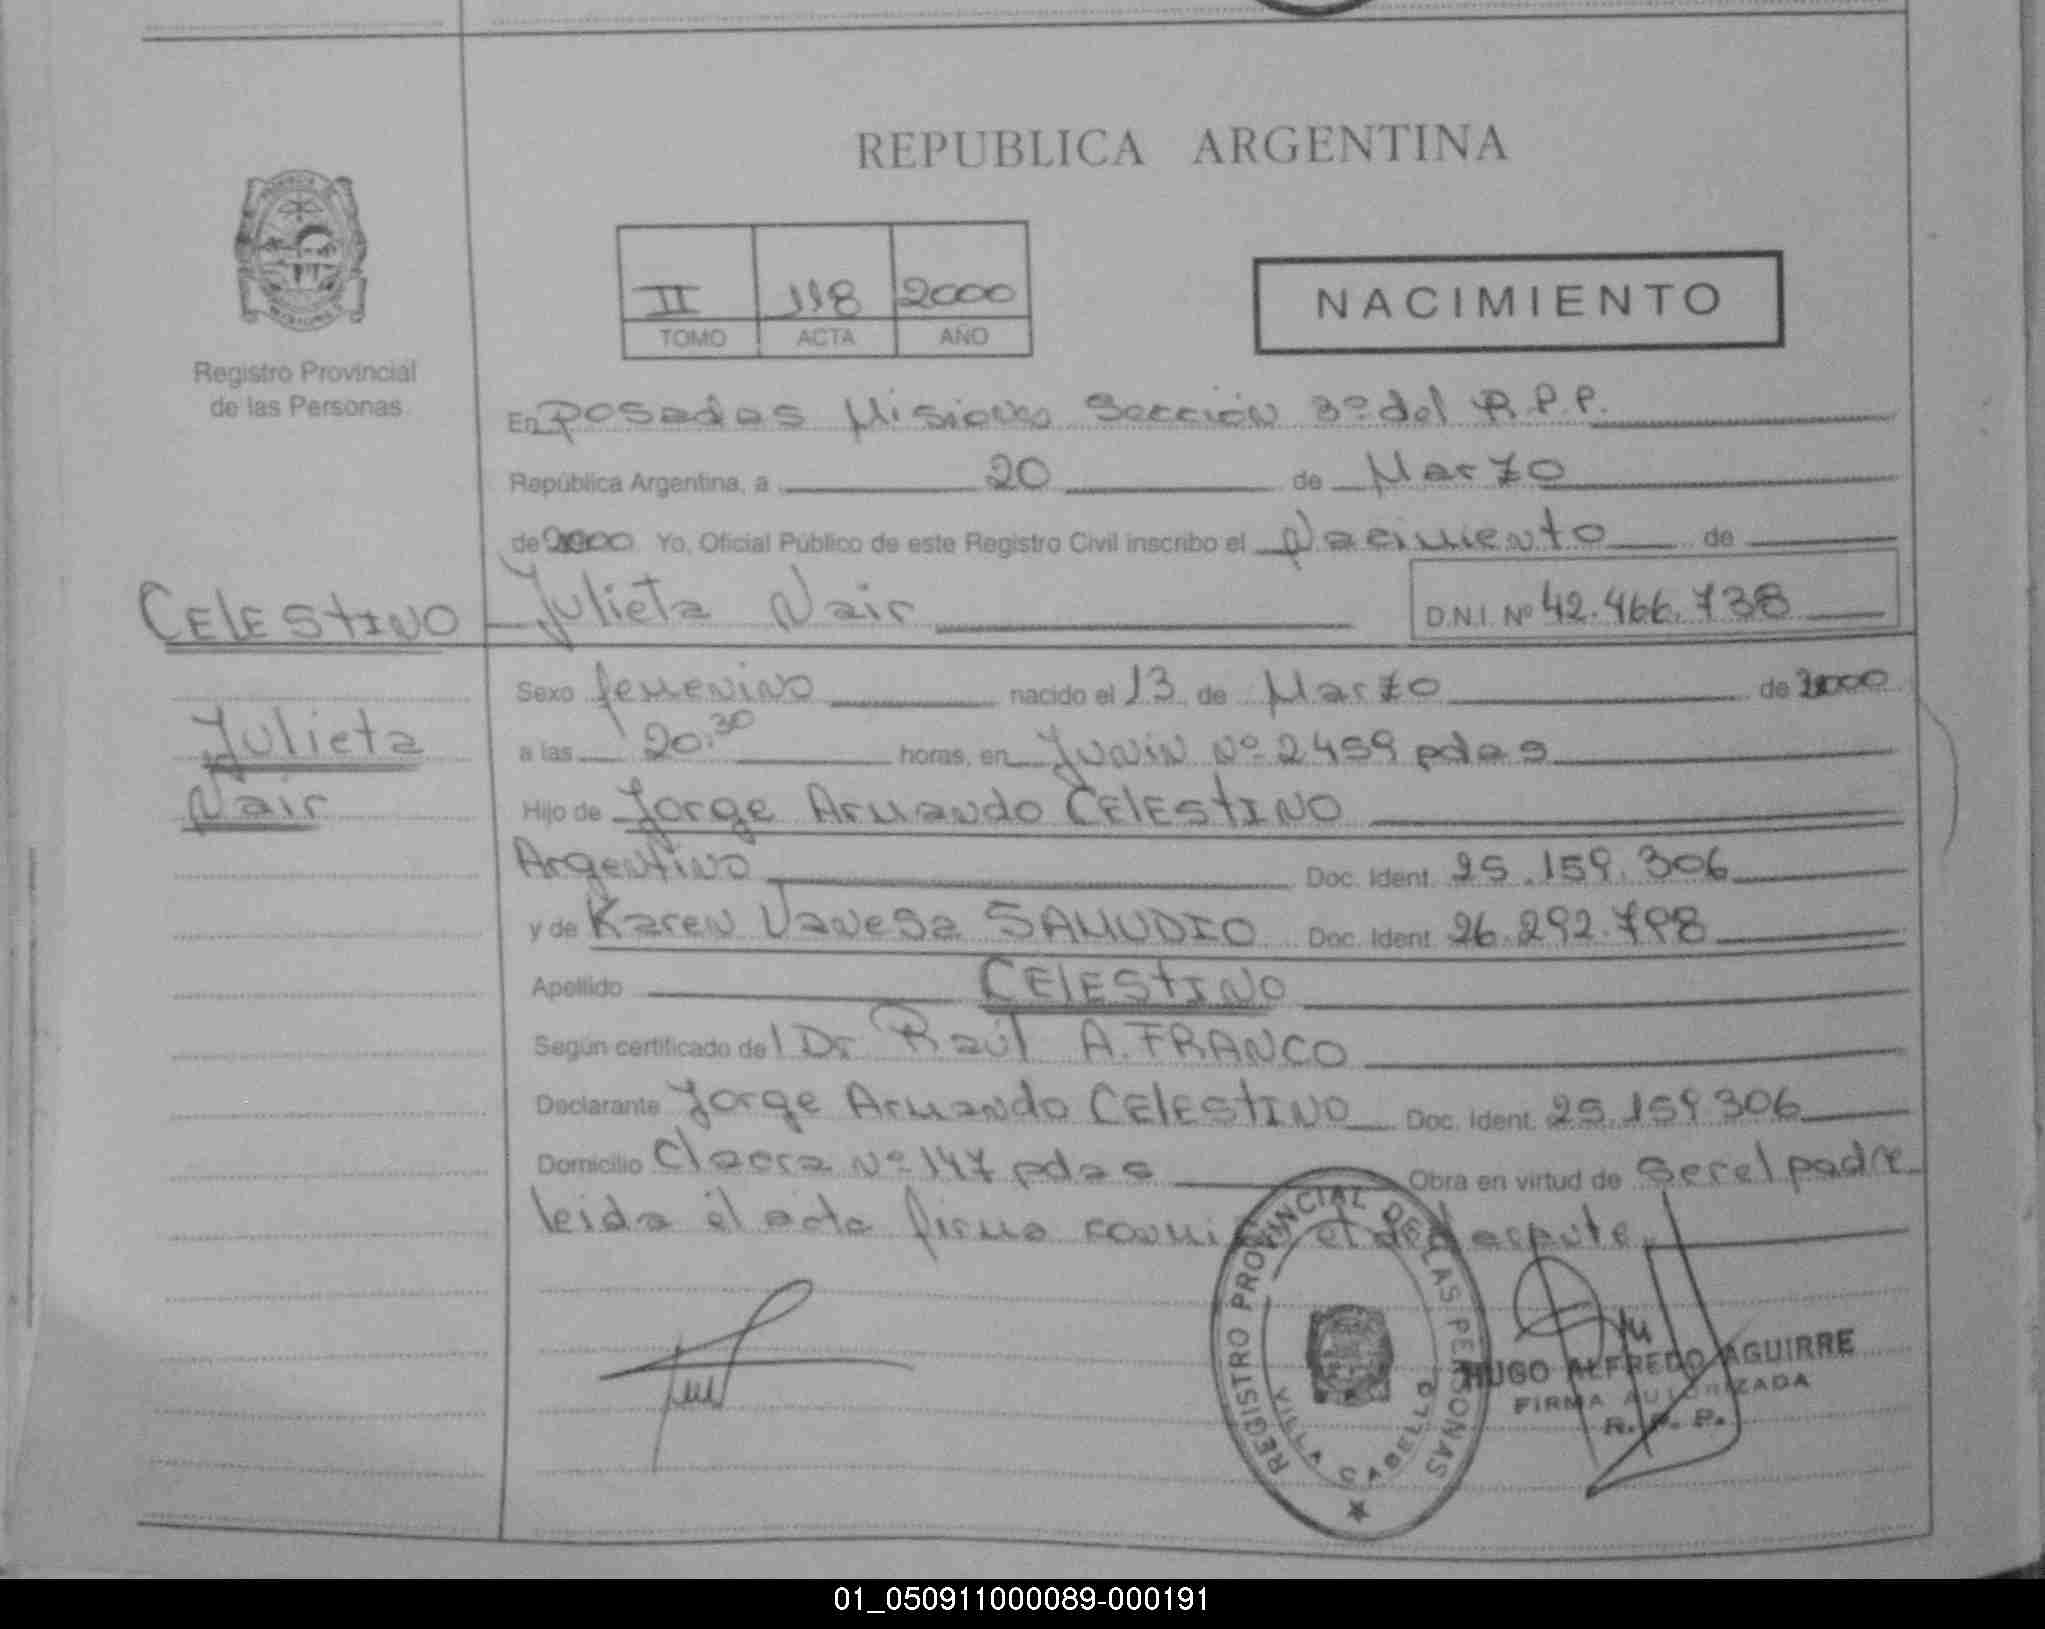 REPUBLICA ARGENTINA
II 118 2000
TOMO ACTA AÑO
NACIMIENTO
Registro Provincial
de las Personas
En Posadas Misiones Sección 3º del R.P.P.
República Argentina, a 20 de Marzo
de 2000 Yo, Oficial Público de este Registro Civil inscribo el Nacimiento de
CELESTINO Julieta Nair D.N.I. Nº 42.466.738
Julieta
Nair
Sexo femenino nacido el 13 de Marzo de 2000
a las 20:30 horas, en Junín Nº 2459 pdas
Hijo de Jorge Armando CELESTINO
Argentino Doc. Ident. 25.159.306
y de Karen Vanesa SAMUDIO Doc. Ident. 26.292.798
Apellido CELESTINO
Según certificado del Dr Raúl A. FRANCO
Declarante Jorge Armando CELESTINO Doc. Ident. 25.159.306
Domicilio Nº 147 pdas Obra en virtud de ser el padre
leida el acta firma
REGISTRO PROVINCIAL DE LAS PERSONAS
VILLA CABELLO
HUGO ALFREDO AGUIRRE
FIRMA AUTORIZADA
R. P. P.
01_050911000089-000191